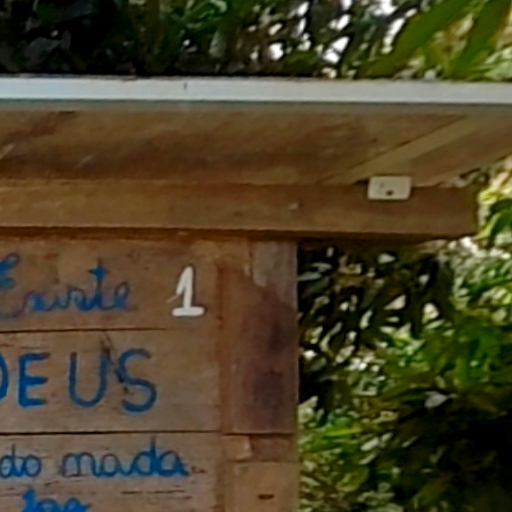 Existe 1
DEUS
do nada